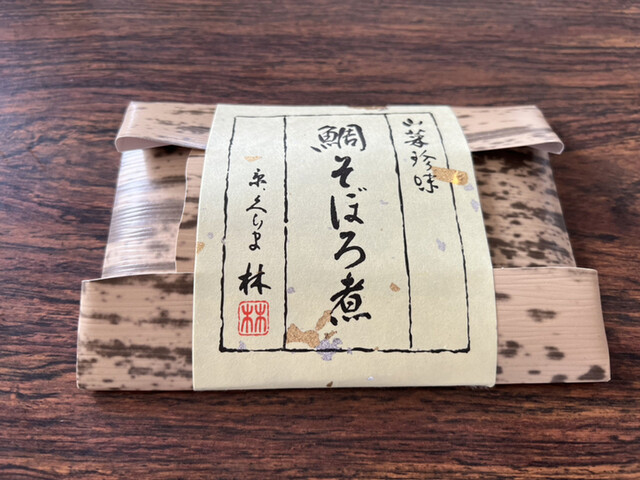 山菜珍味
鯛そぼろ煮
京、くらま 林
林